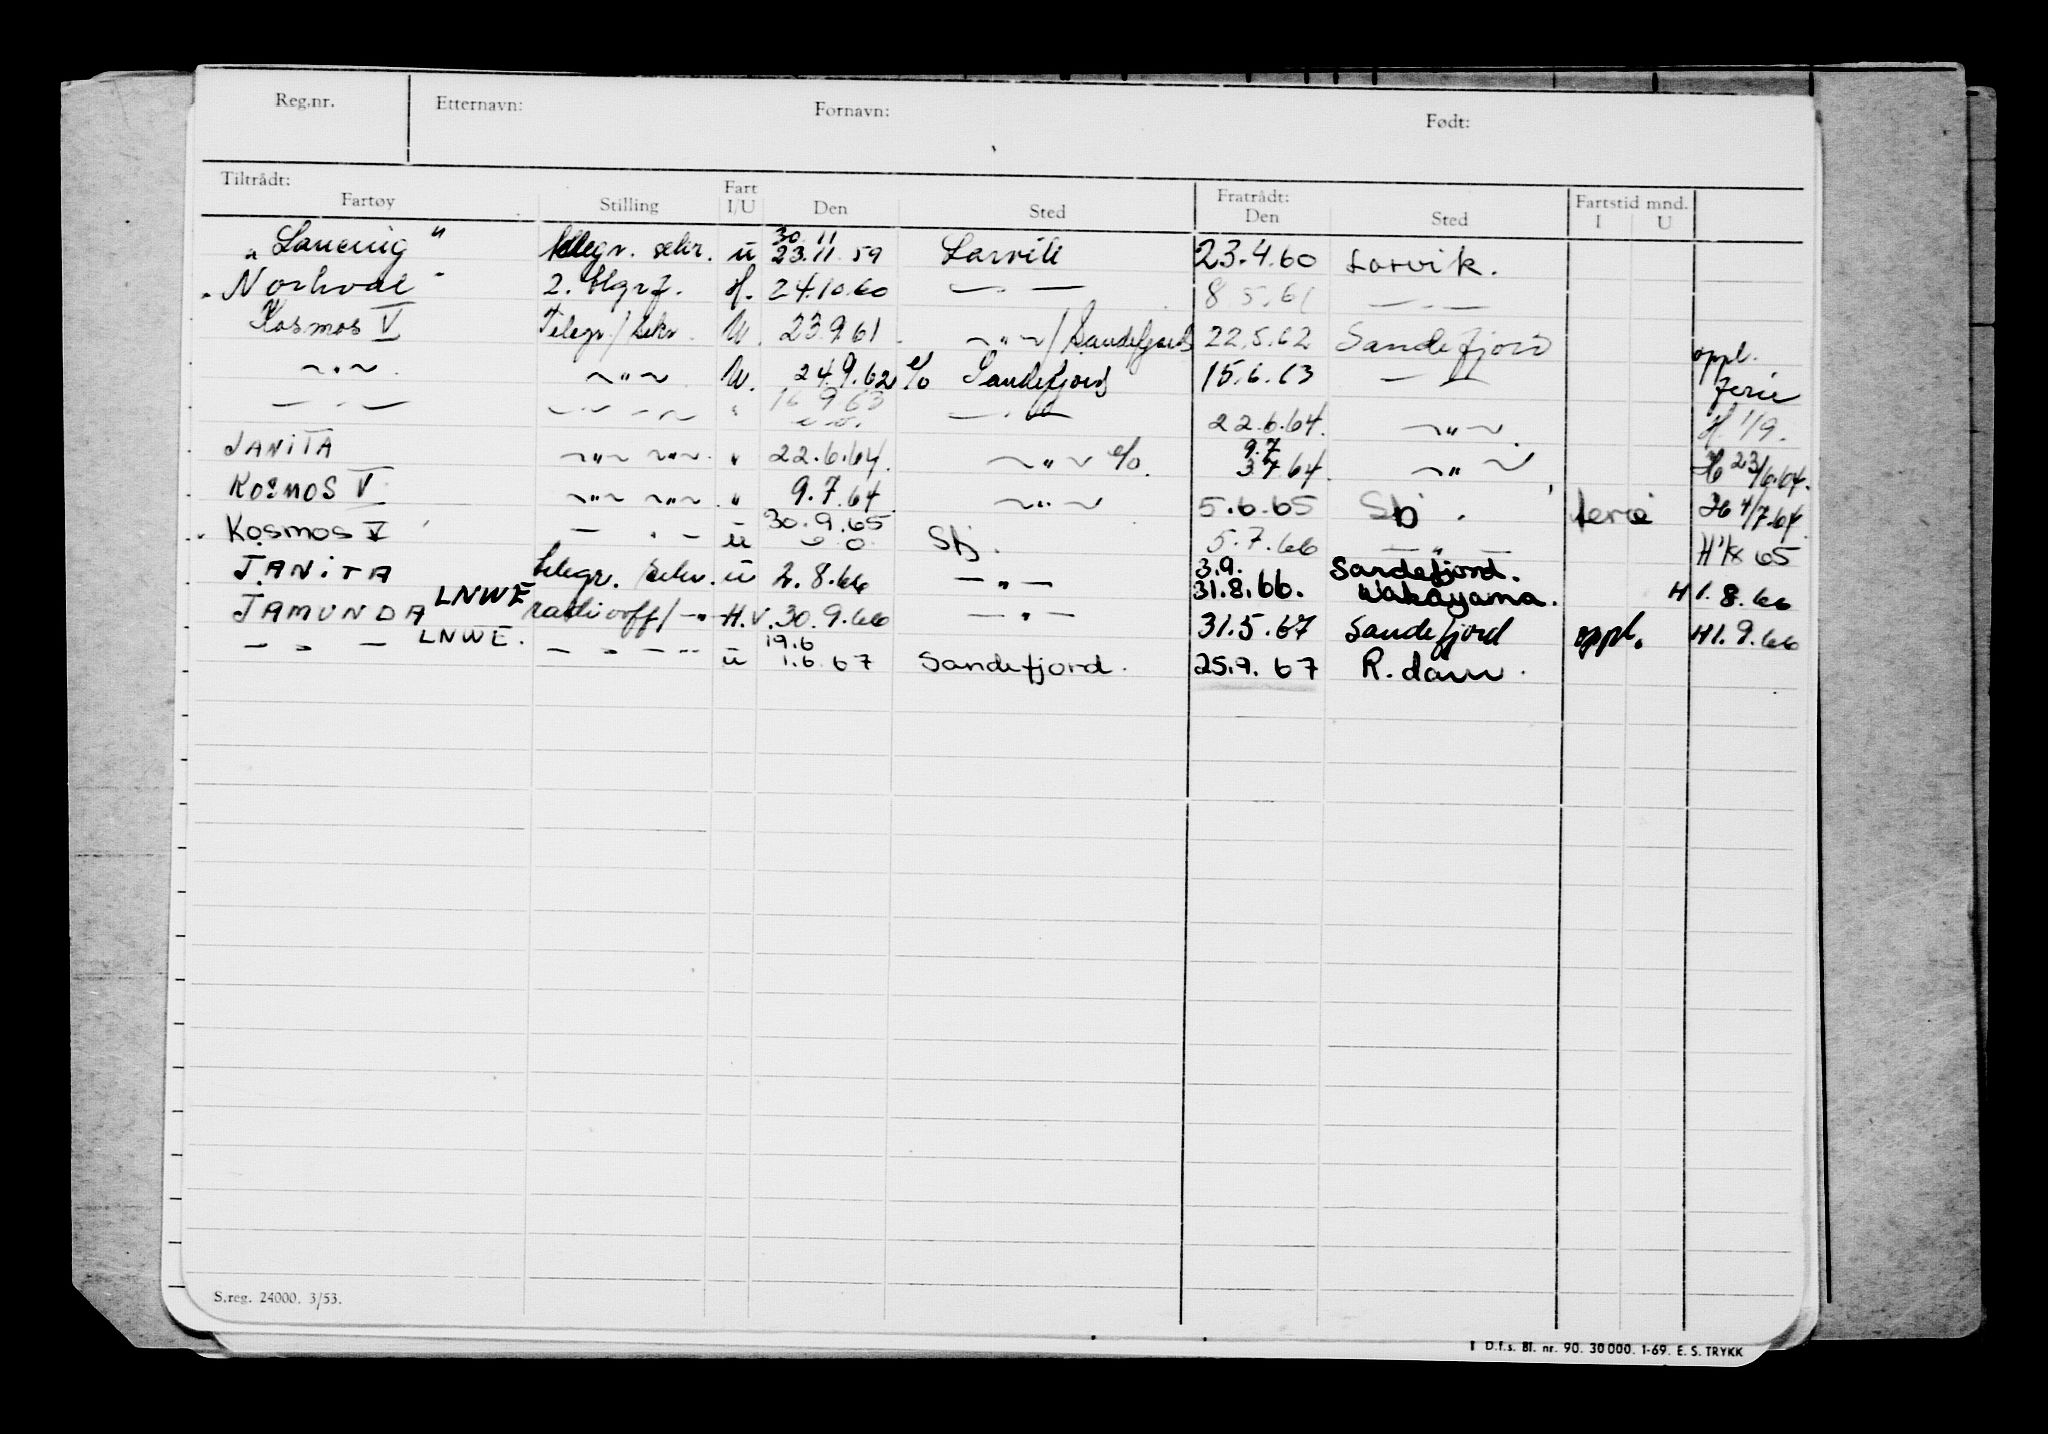 Reg.nr. Etternavn: Fornavn: Født:
Tiltrådt: Fratrådt:
Fartøy Stilling Fart I/U Den Sted Den Sted Fartstid mnd. I U
30.11
"Lancing" telegr. sekr. u 23.11.59 Larvik 23.4.60 Larvik.
"Norhval" 2. tlgrf. H. 24.10.60 — — 8.5.61 — —
Kosmos V Telegr./sekr. U. 23.9.61 — " — / Sandefjord 22.5.62 Sandefjord oppl.
— " — — " — U. 24.9.62 e/o Sandefjord 15.6.63 — — ferie
— " — — " — — " — " 16.9.63 — " — 22.6.64. — " — H 1/9.
e.o. 9.7
JANITA — " — — " — " 22.6.64. — " — e/o. 3.7.64. — " — H 23/6.64.
KOSMOS V — " — — " — " 9.7.64 — " — 5.6.65 Sfj. ferie H 4/7.64
30.9.65
Kosmos V — " — u e.o. Sfj. 5.7.66 — " — H 1/8 65
3.9. Sandefjord.
JANITA telegr. sekr. u 2.8.66 — " — 31.8.66. Wakayama. H 1.8.66
JAMUNDA LNWE radiooff/ — " — H.V. 30.9.66 — " — 31.5.67 Sandefjord oppl. H 1.9.66
19.6
— " — LNWE. — " — " u 1.6.67 Sandefjord. 25.9.67 R.dam.
S.reg. 24000. 3/53.
D.f.s. Bl. nr. 90. 30 000. 1-69. E. S. TRYKK